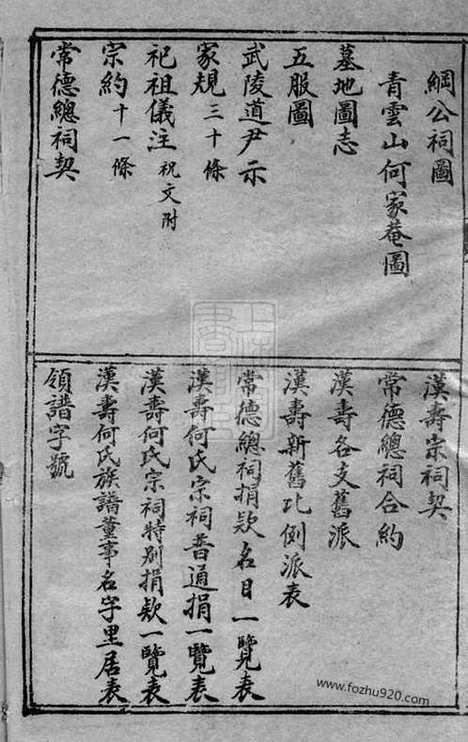 綱公祠圖
青雲山何家菴圖
墓地圖志
五服圖
武陵道尹示
家規三十條
祀祖儀注祝文附
宗約十一條
常德總祠契
漢壽宗祠契
常德總祠合約
漢壽各支舊派
漢壽新舊比例派表
常德總祠捐欵名目一覽表
漢壽何氏宗祠普通捐一覽表
漢壽何氏宗祠特别捐欵一覽表
漢壽何氏族譜董事名字里居表
領譜字號
www.fozhu920.com